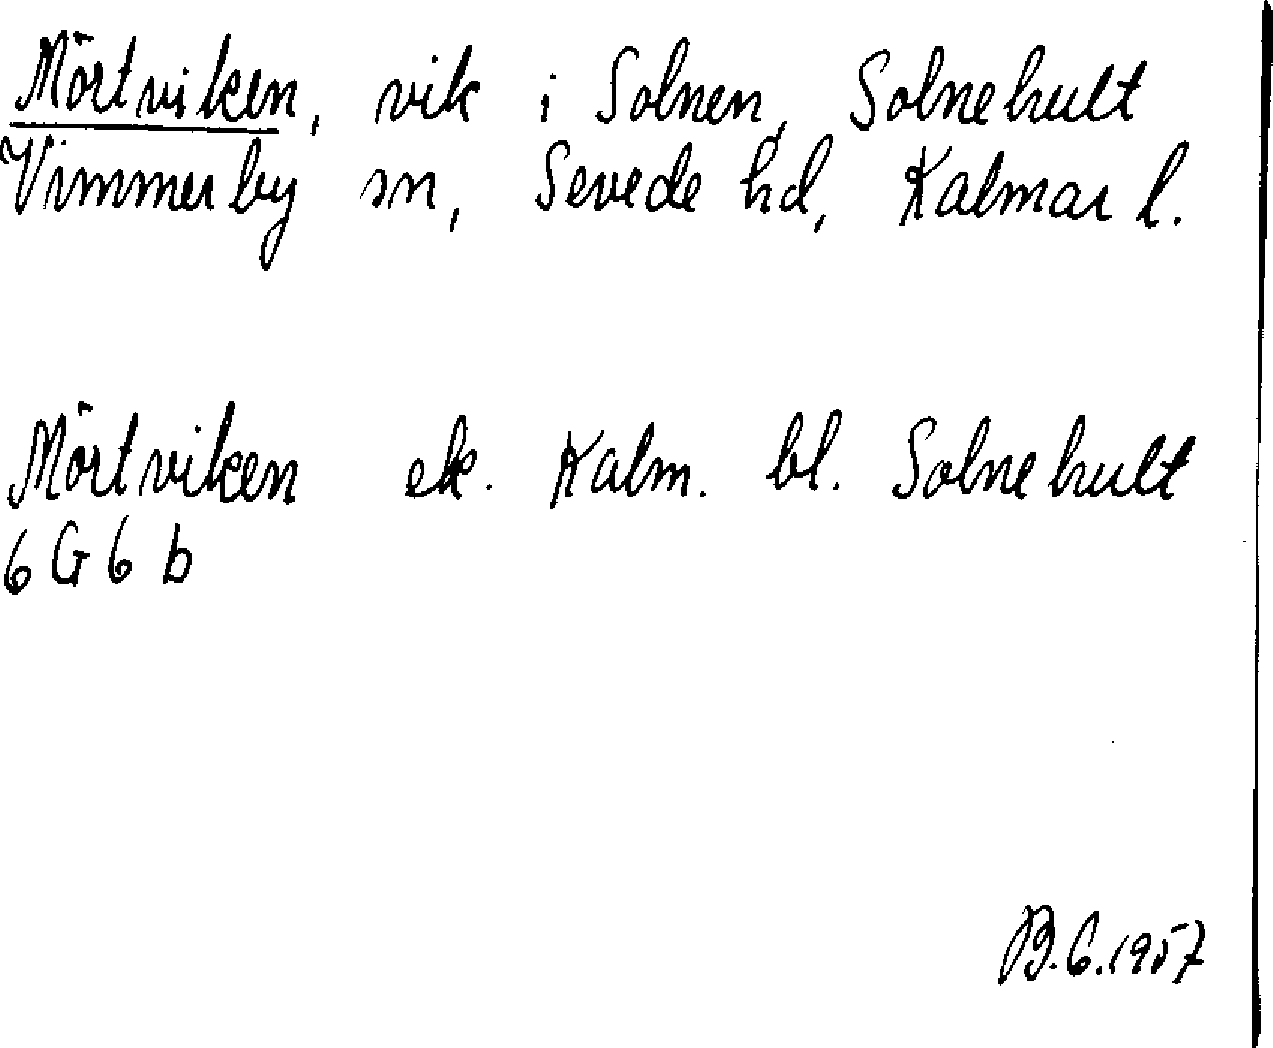 Mörtviken, vik i Solnen, Solnehult
Vimmerby sn, Sevede hd, Kalmar l.
Mörtviken ek. Kalm. bl. Solnehult
6 G 6 b
B.G.1957